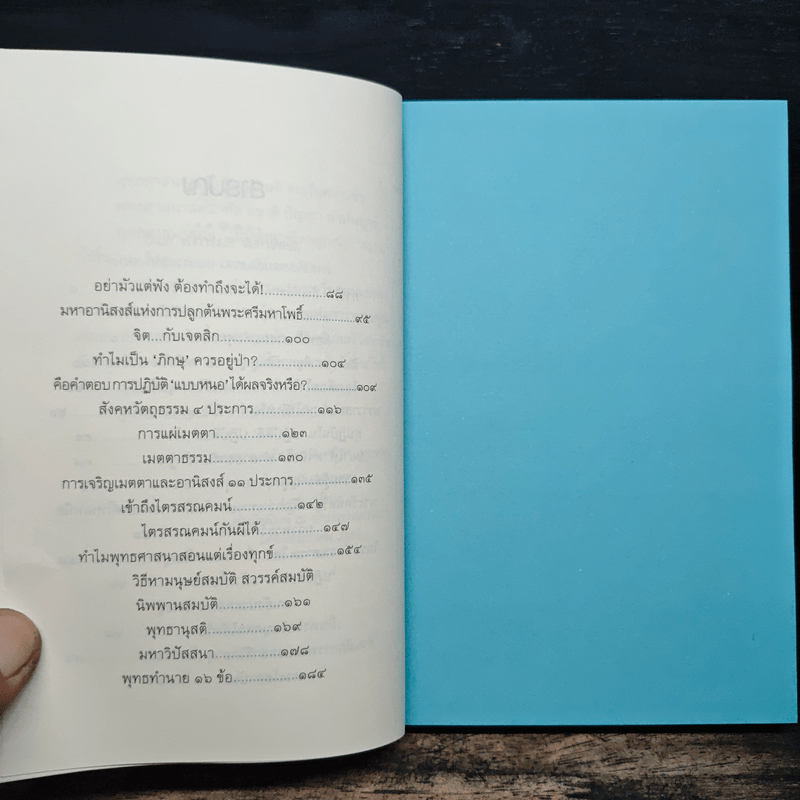 อย่ามัวแต่ฟัง ต้องทำถึงจะได้!................๘๘
มหาอานิสงส์แห่งการปลูกต้นพระศรีมหาโพธิ์..............๙๕
จิต...กับเจตสิก................๑๐๐
ทำไมเป็น ‘ภิกษุ’ ควรอยู่ป่า?................๑๐๔
คือคำตอบ การปฏิบัติ ‘แบบหนอ’ ได้ผลจริงหรือ?.............๑๐๙
สังคหวัตถุธรรม ๔ ประการ................๑๑๖
การแผ่เมตตา................๑๒๓
เมตตาธรรม................๑๓๐
การเจริญเมตตาและอานิสงส์ ๑๑ ประการ..............๑๓๕
เข้าถึงไตรสรณคมน์................๑๔๒
ไตรสรณคมน์กันผีได้................๑๔๗
ทำไมพุทธศาสนาสอนแต่เรื่องทุกข์................๑๕๔
วิธีหามนุษย์สมบัติ สวรรค์สมบัติ
นิพพานสมบัติ................๑๖๑
พุทธานุสติ................๑๖๙
มหาวิปัสสนา................๑๗๘
พุทธทำนาย ๑๖ ข้อ................๑๘๔